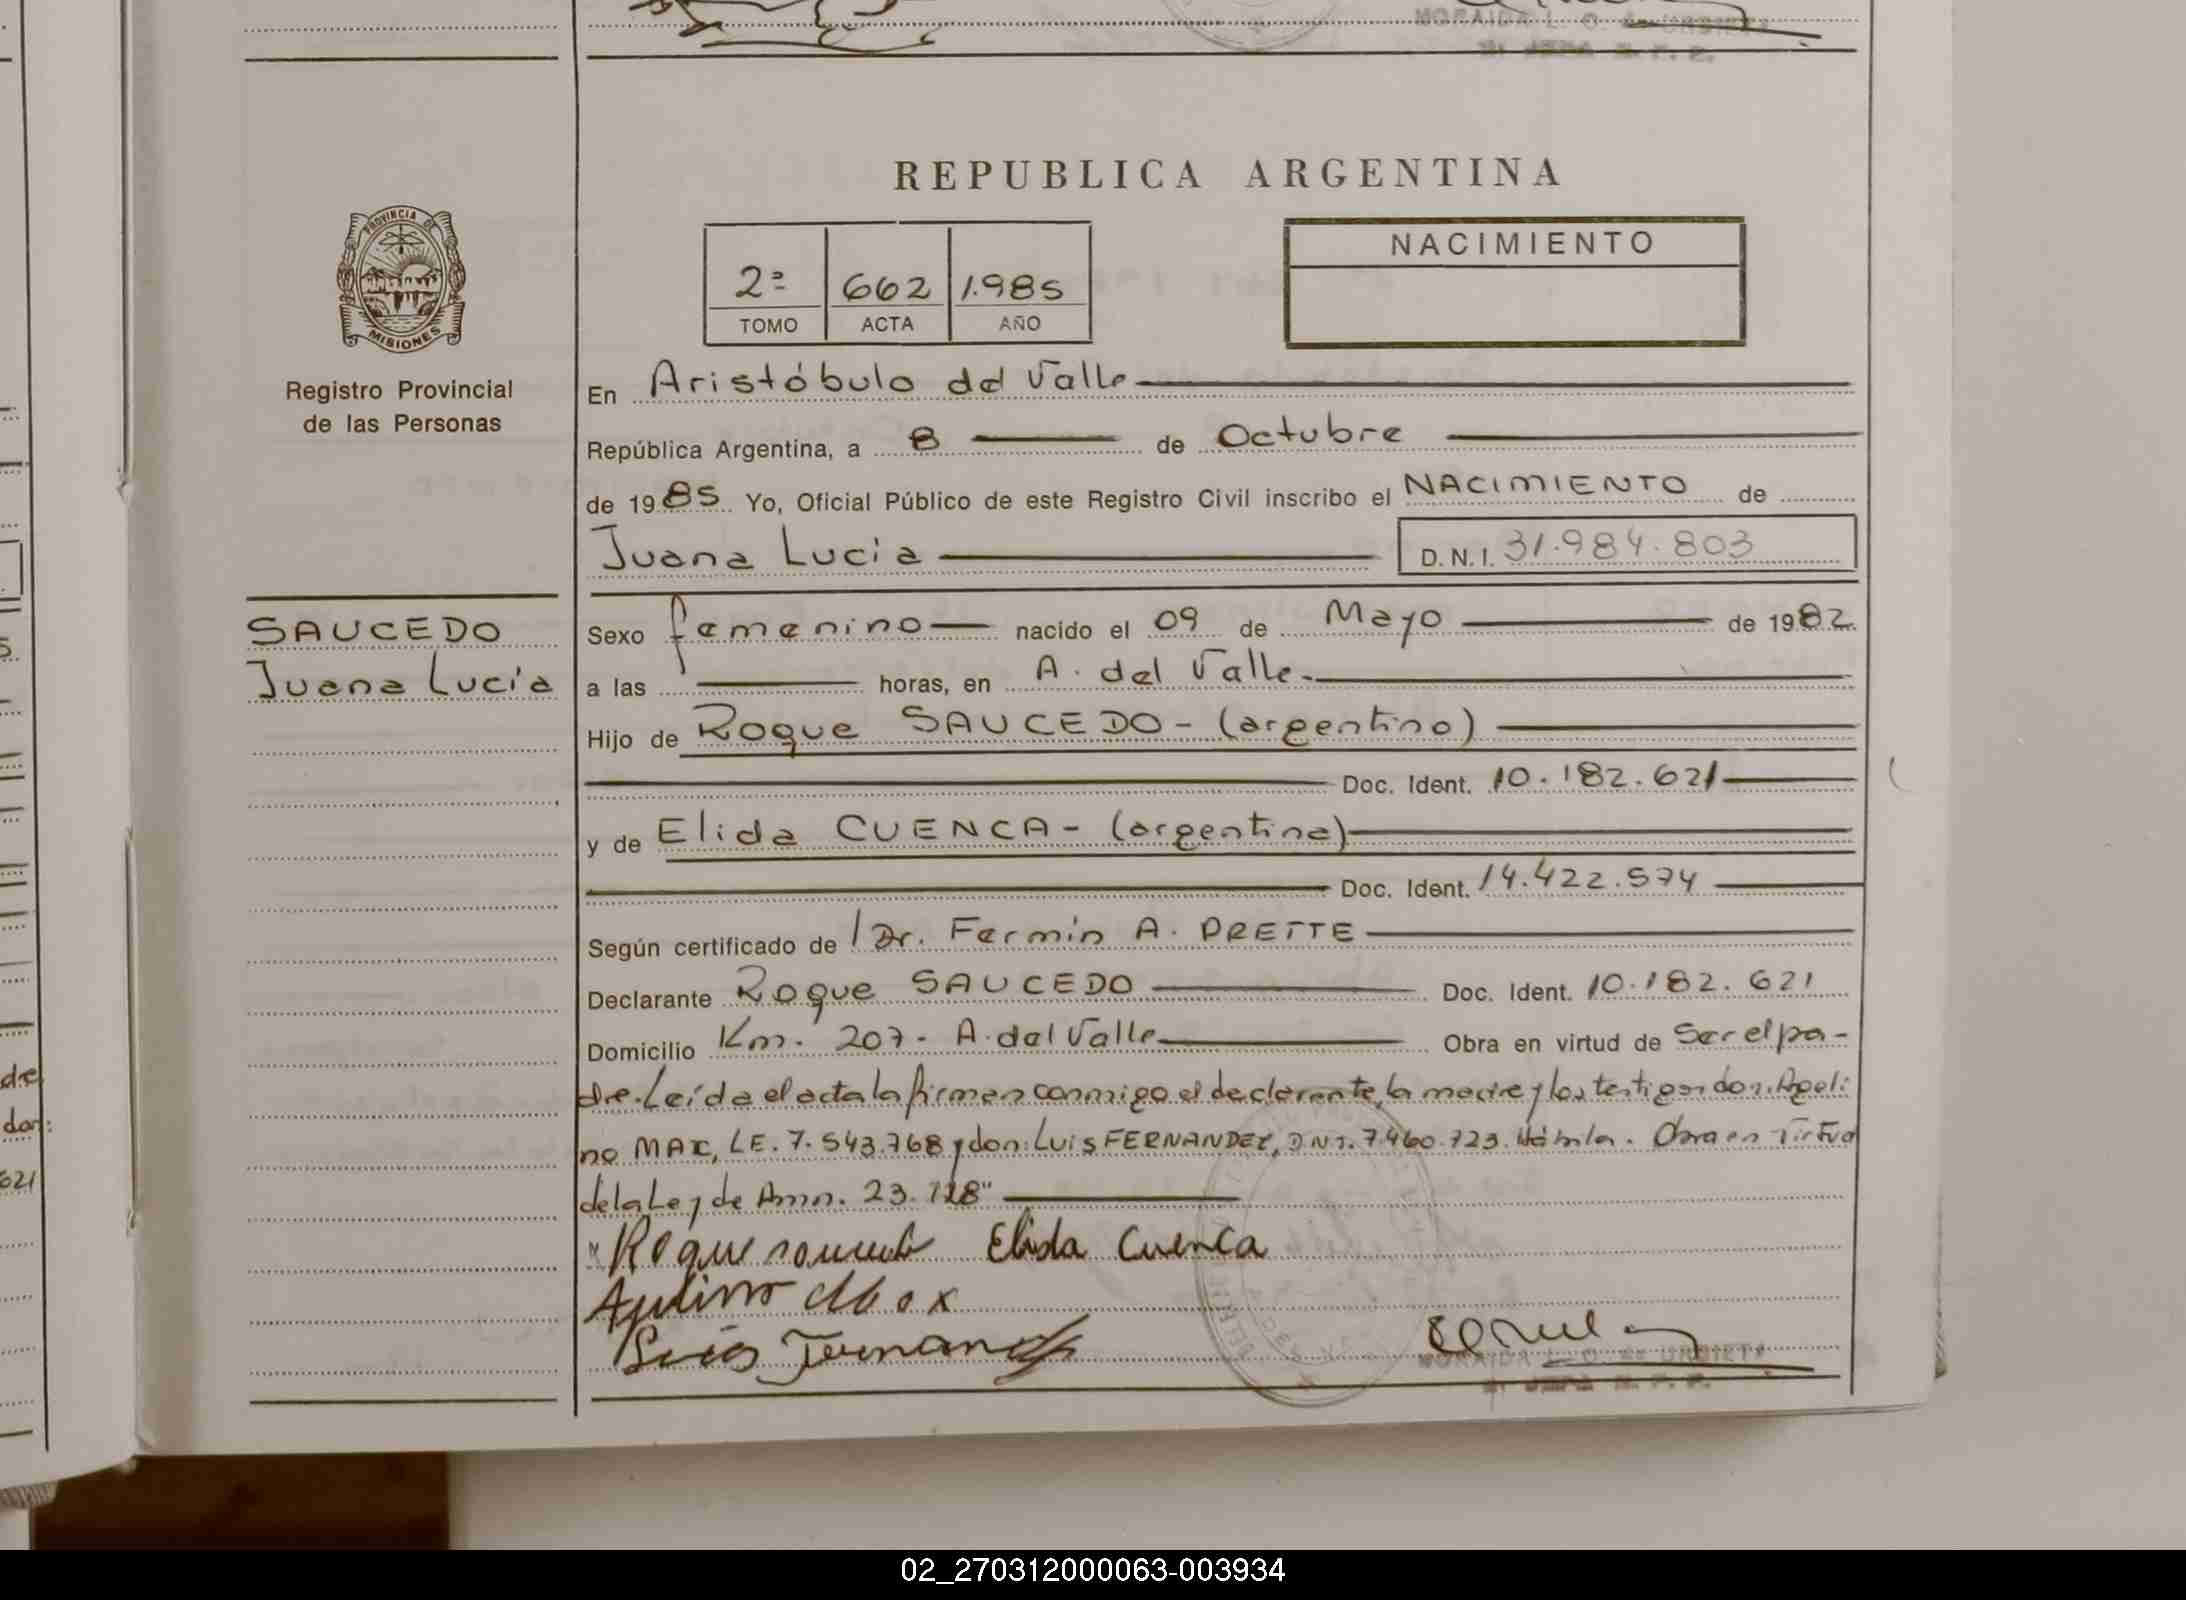 REPUBLICA ARGENTINA
2ª 662 1.985
TOMO ACTA AÑO
NACIMIENTO
PROVINCIA DE
MISIONES
Registro Provincial
de las Personas
SAUCEDO
Juana Lucía
En Aristóbulo del Valle
República Argentina, a 8 de Octubre
de 1985 Yo, Oficial Público de este Registro Civil inscribo el NACIMIENTO de
Juana Lucia D.N.I. 31.984.803
Sexo femenino nacido el 09 de Mayo de 1982
a las horas, en A. del Valle.
Hijo de Roque SAUCEDO - (argentino)
Doc. Ident. 10.182.621
y de Elida CUENCA - (argentina)
Doc. Ident. 14.422.574
Según certificado de Dr. Fermín A. PRETTE
Declarante Roque SAUCEDO Doc. Ident. 10.182.621
Domicilio Km. 207 - A. del Valle Obra en virtud de Ser el pa-
dre. Leída el acta la firman conmigo el declarante, la madre y los testigos don: Apoli:
no MAX, LE. 7.543.768 y don: Luis FERNANDEZ, DNI. 7.460.723. Hábiles. Obra en Virtud
de la Ley de Amn. 23.128"
Roque Saucedo Elida Cuenca
Apolino Max
Luis Fernandez
02_270312000063-003934